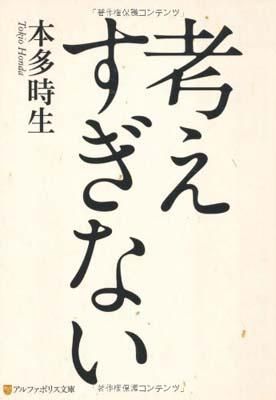 「著作権保護コンテンツ」
考え
すぎない
本多時生
Tokio Honda
アルファポリス文庫
「著作権保護コンテンツ」